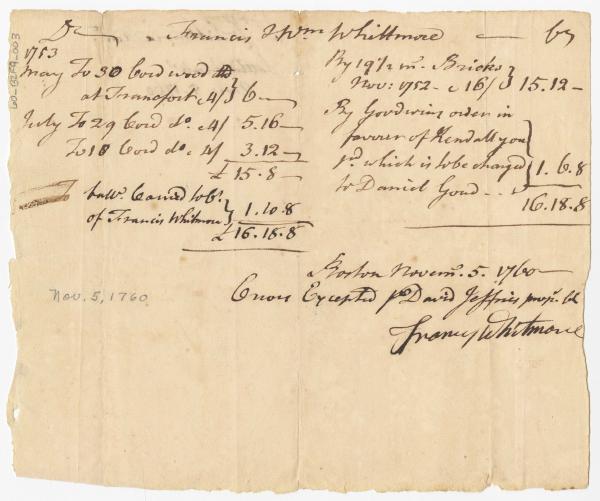 Dr Francis & Wm Whittmore Cr
1753
May To 30 Cord wood
at Transport @ 4/ } 6 —
July To 29 Cord do @ 4/ 5.16 —
To 18 Cord do @ 4/ 3.12 —
£ 15.8 —
ballce Carried to Cr
of Francis Whitmore } 1.10.8
£ 16.18.8
By 19½ m Bricks
Nov: 1752 @ 16/ } 15.12 —
By Goodwins order in
favour of Kendall you
pd which is to be charged
to Daniel Goud } 1.6.8
16.18.8
Boston Novemr 5. 1760
Errors Excepted pr David Jeffries
Francis Whitmore
Nov. 5, 1760